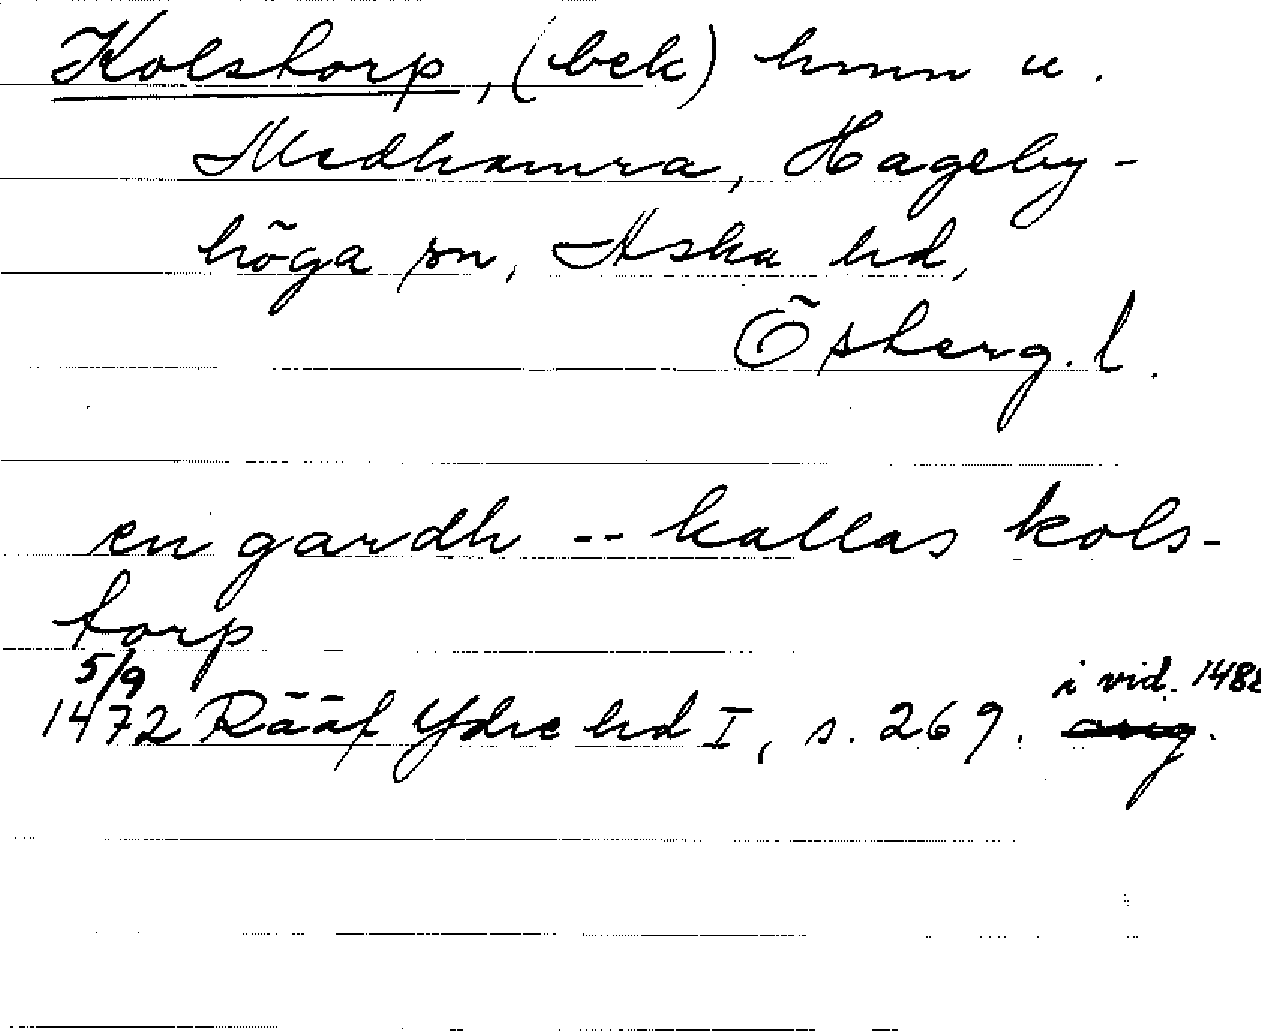 Kolstorp, (bek) hmn u.
Medhamra, Hageby-
höga sn, Aska hd,
Östergl.
en gardh -- kallas kols-
torp
5/9 i vid. 148
1472 Rääf Ydre hd I, s. 269. orig.